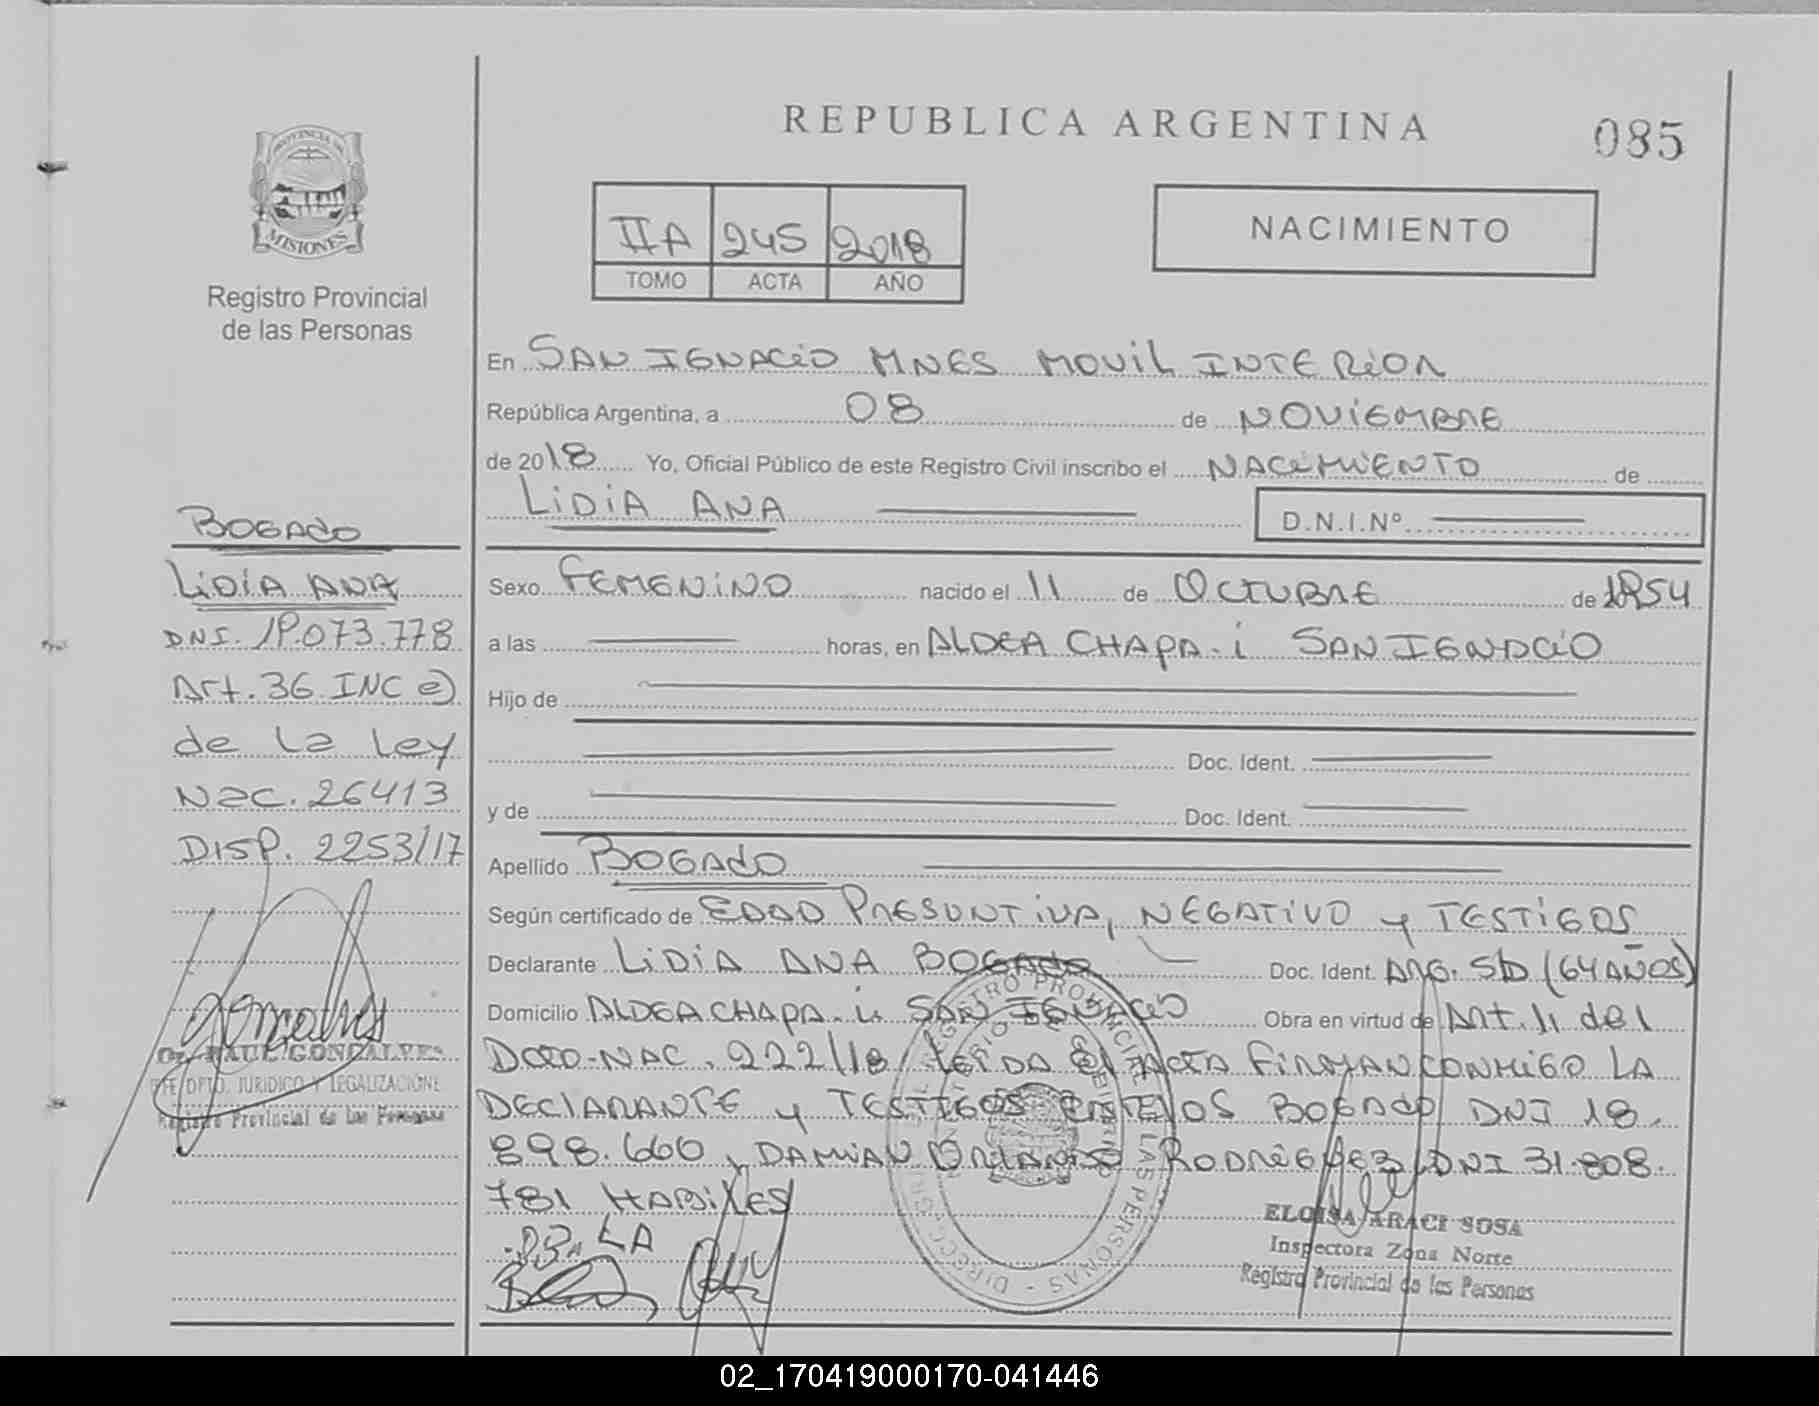 REPUBLICA ARGENTINA
085
PROVINCIA DE
MISIONES
Registro Provincial
de las Personas
IIA 245 2018
TOMO ACTA AÑO
NACIMIENTO
En SAN IGNACIO MNES MOVIL INTERIOR
República Argentina, a 08 de NOVIEMBRE
de 2018 Yo, Oficial Público de este Registro Civil inscribo el NACIMIENTO de
LIDIA ANA
D.N.I.Nº
Sexo FEMENINO nacido el 11 de OCTUBRE de 1954
a las horas, en ALDEA CHAPA-i SAN IGNACIO
Hijo de
Doc. Ident.
y de Doc. Ident.
Apellido BOGADO
Según certificado de EDAD PRESUNTIVA, NEGATIVO y TESTIGOS
Declarante LIDIA ANA BOGADO Doc. Ident. ARG. S/D (64 AÑOS)
Domicilio ALDEA CHAPA-i SAN IGNACIO Obra en virtud de Art. 11 del
DCTO-NAC. 222/18 LEIDA EL ACTA FIRMAN CONMIGO LA
DECLARANTE y TESTIGOS BOGADO DNI 18.
898.660 y DAMIAN ORLANDO RODRIGUEZ DNI 31.808.
781 HABILES
BOGADO
LIDIA ANA
DNI. 19.073.778
Art. 36 INC e)
de la ley
Nac. 26413
DISP. 2253/17
Dr. RAUL GONCALVES
JEFE DPTO. JURIDICO Y LEGALIZACIONE
Registro Provincial de las Personas
ELOISA ARACI SOSA
Inspectora Zona Norte
Registro Provincial de las Personas
02_170419000170-041446